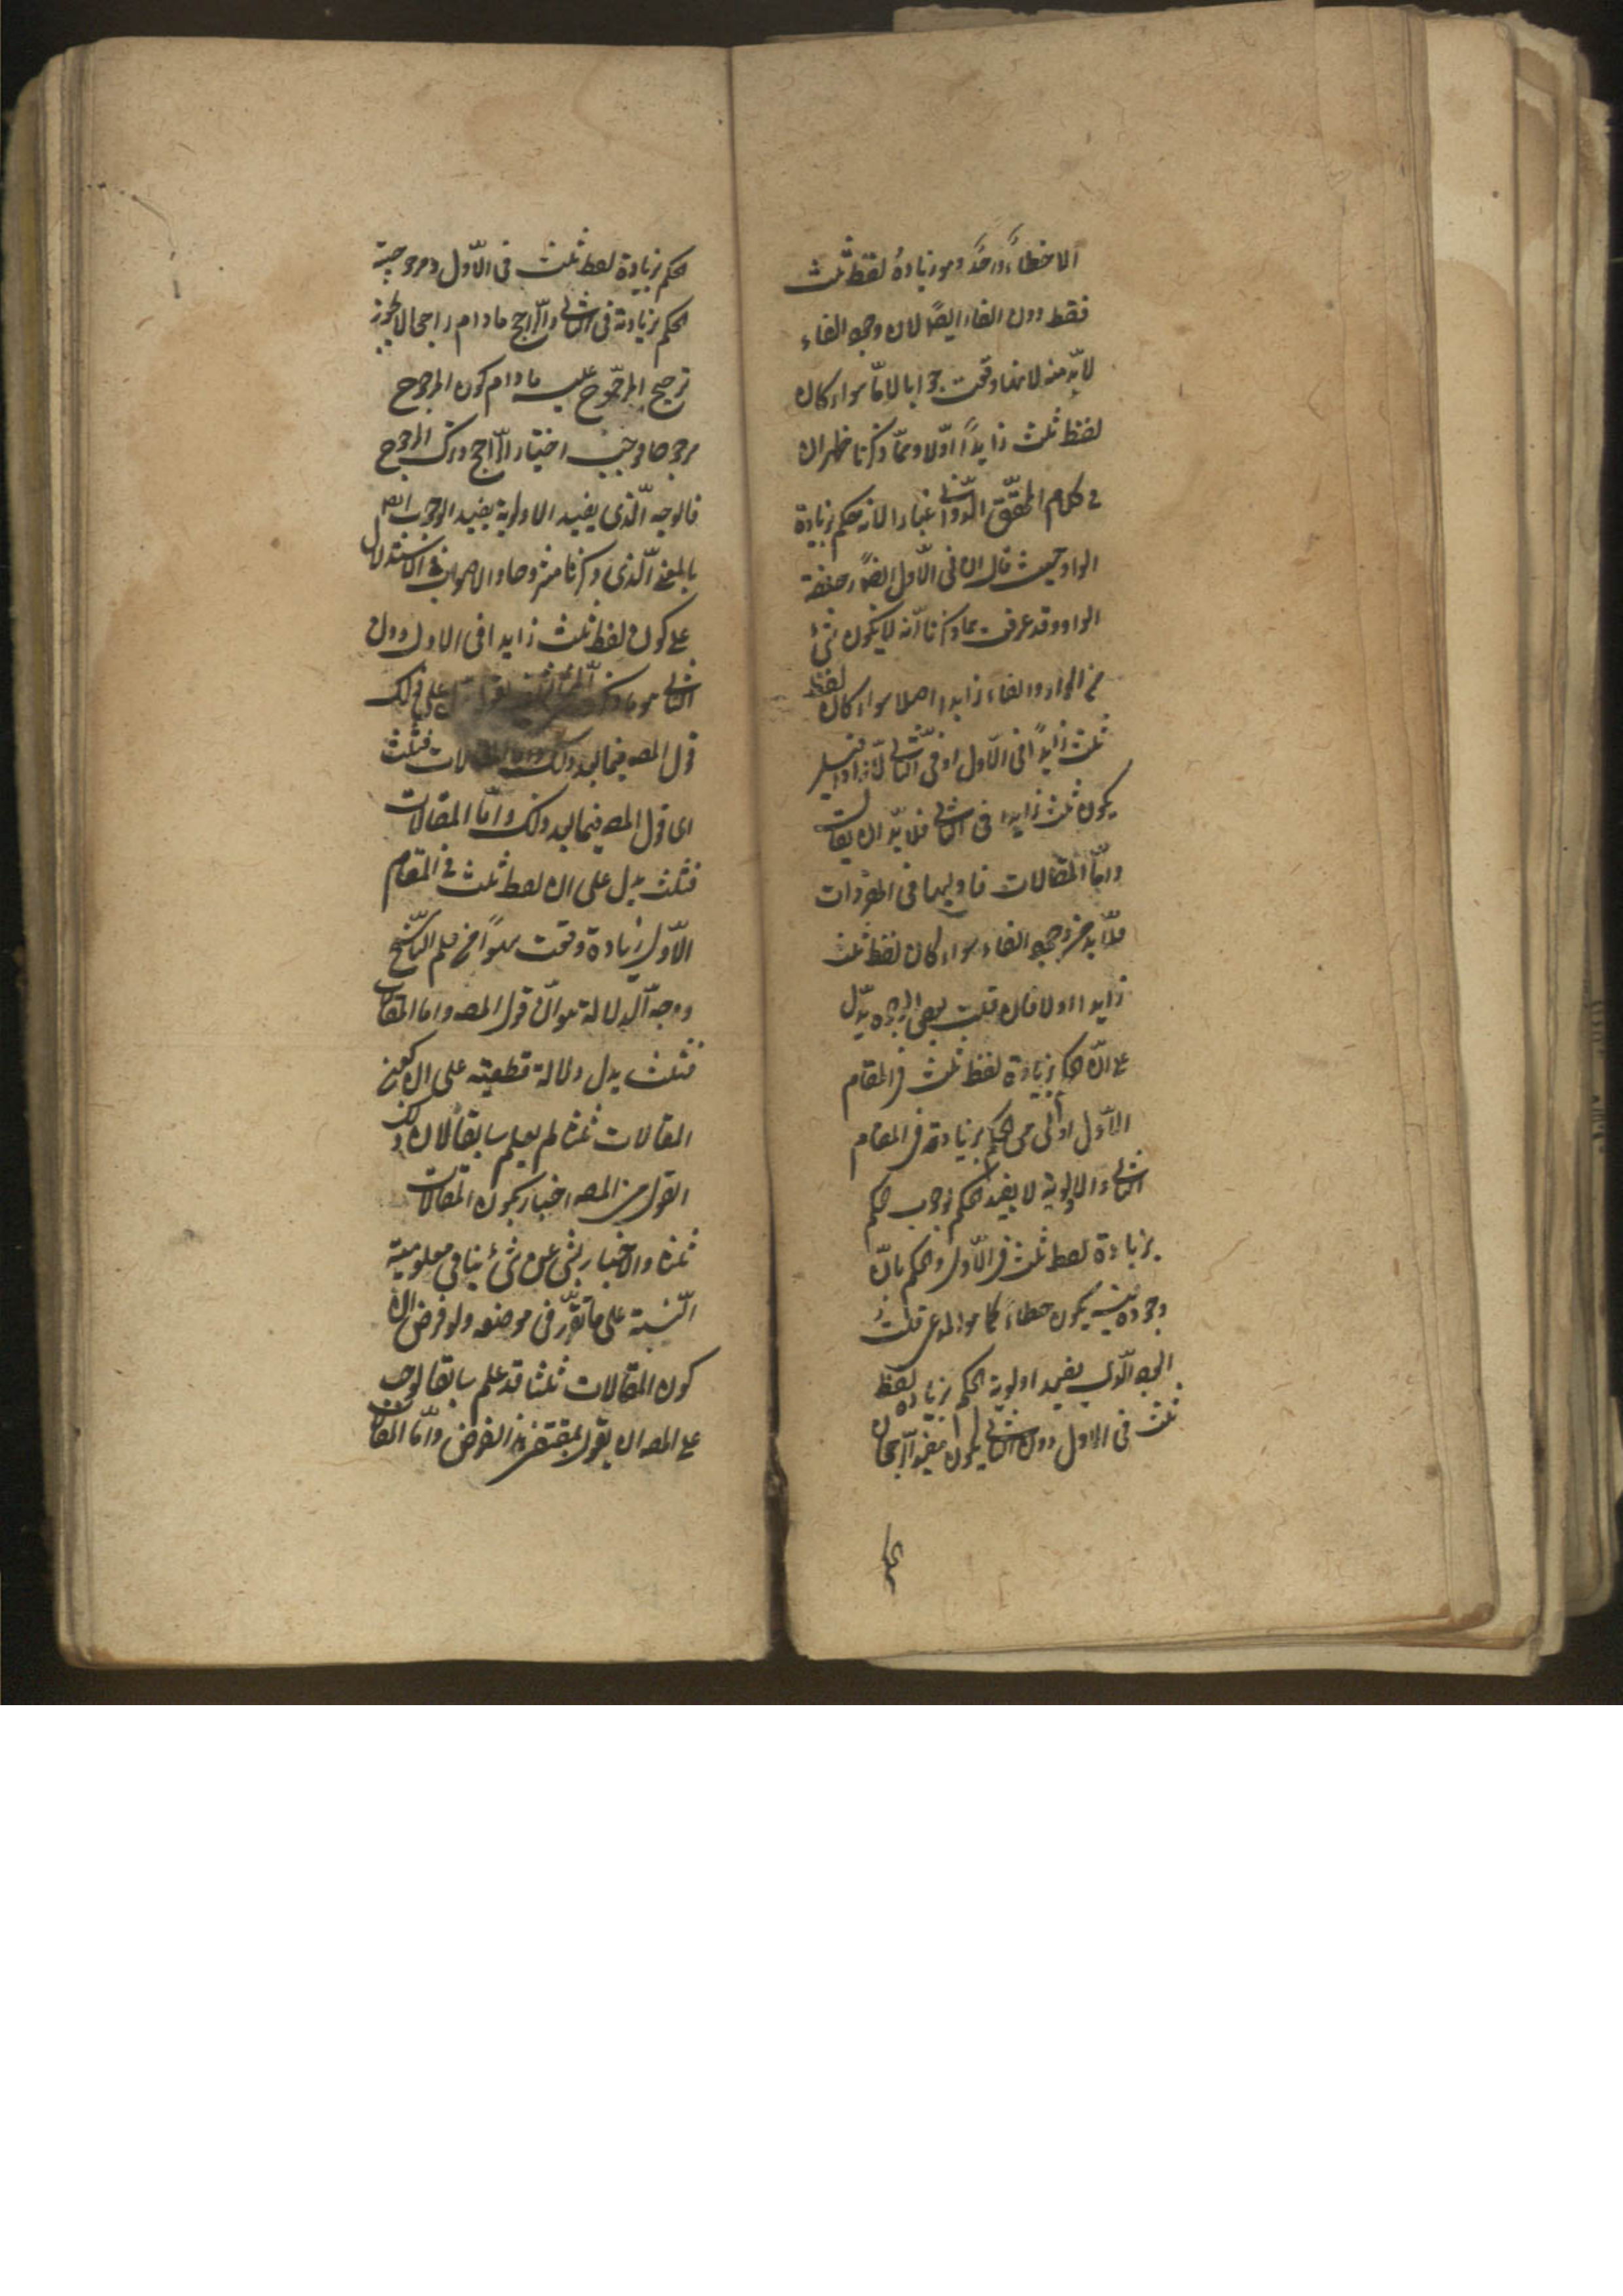 الا خطاءً واحدًا وهو زيادة لفظ ثلث
فقط دون الفاء ايضًا لان وجود الفاء
لابدّ منه لانها وقعت جوابا لامّا سواء كان
لفظ ثلث زايدًا اوّلا وممّا ذكرنا ظهر ان
في كلام المحقّق الدّوّاني غبارا لانه حكم بزيادة
الواو حيث قال ان في الاوّل ايضًا
الواو وقد عرفت بما ذكرنا انّه لا يكون شئ
من الواو والفاء زايدا اصلا سواء كان لفظ
ثلث زايدًا في الاوّل او في الثّاني لانه اذا قيل
يكون ثلث زايدا في الثاني فلابدّ ان يقال
وامّا المقالات فاوليها في المفردات
فلابد من وجود الفاء سواء كان لفظ ثلث
زايدا اولا فان قلت بعض الوجوه يدلّ
على انّ الحكم بزيادة لفظ ثلث في المقام
الاوّل اولى من الحكم بزيادته في المقام
الثاني والاولوية لا يفيد الحكم بوجوب الحكم
بزيادة لفظ ثلث في الاوّل والحكم بانّ
وجوده فيه يكون خطاءً كما هو المدعى قلتُ
الوجه الّذي يفيد اولوية الحكم بزيادة لفظ
ثلث في الاول دون الثاني يكون مفيد الرّجحان
الحكم بزيادة لفظ ثلث في الاوّل ومرجوحية
الحكم بزيادته في الثاني والرّاجح ما دام راجحا لا يجوز
ترجيح المرجّوح عليه ما دام كون المرجوح
مرجوحا فوجب اختيار الرّاجح وترك المرجوح
فالوجه الّذي يفيد الاولوية يفيد الوجوب ايضا
بالمعنى الّذي ذكرنا مشروحا والاصوب في الاستدلال
على كون لفظ ثلث زايدا في الاول دون
الثاني هو ما ذكره على ذلك
قول المصـ فيما بعد ذلك وامّا المقالات فثلث
اي قول المصـ فيما بعد ذلك وامّا المقالات
فثلث يدل على ان لفظ ثلث في المقام
الاوّل زيادة وقعت سهوًا من قلم النّاسخ
ووجه الّدلالة هو انّ قول المصـ واما المقالات
فثلث يدل دلالة قطعية على ان كون
المقالات ثلثا لم يعلم سابقا لان ذلك
القول من المصـ اخبار بكون المقالات
ثلثا والاخبار بشئ عن شئ ينافي معلومية
النّسبة على ما تقرّر في موضعه ولو فرض ان
كون المقالات ثلثا قد علم سابقا لوجب
على المصـ ان يقول بمقتضى هذا الفرض وامّا المقالات